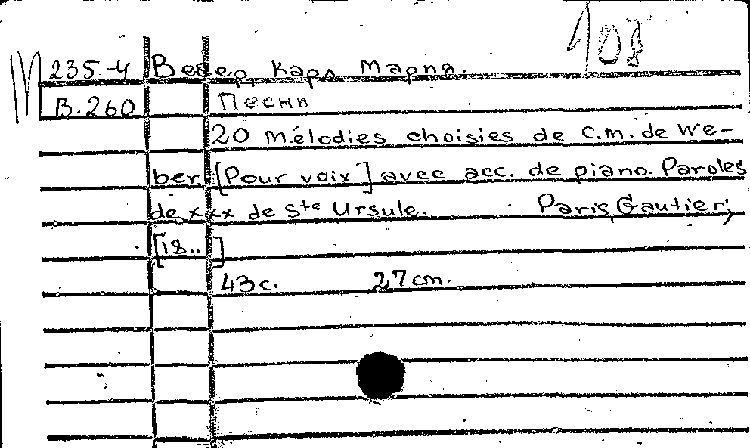 108
М 235-4 Вебер, Карл Мария.
В.260 Песни
20 Mélodies choisies de C.M. de We-
ber. [Pour voix] avec acc. de piano. Paroles
de xxx de Ste Ursule. Paris, Gautier,
[18..]
43 с. 27 cm.